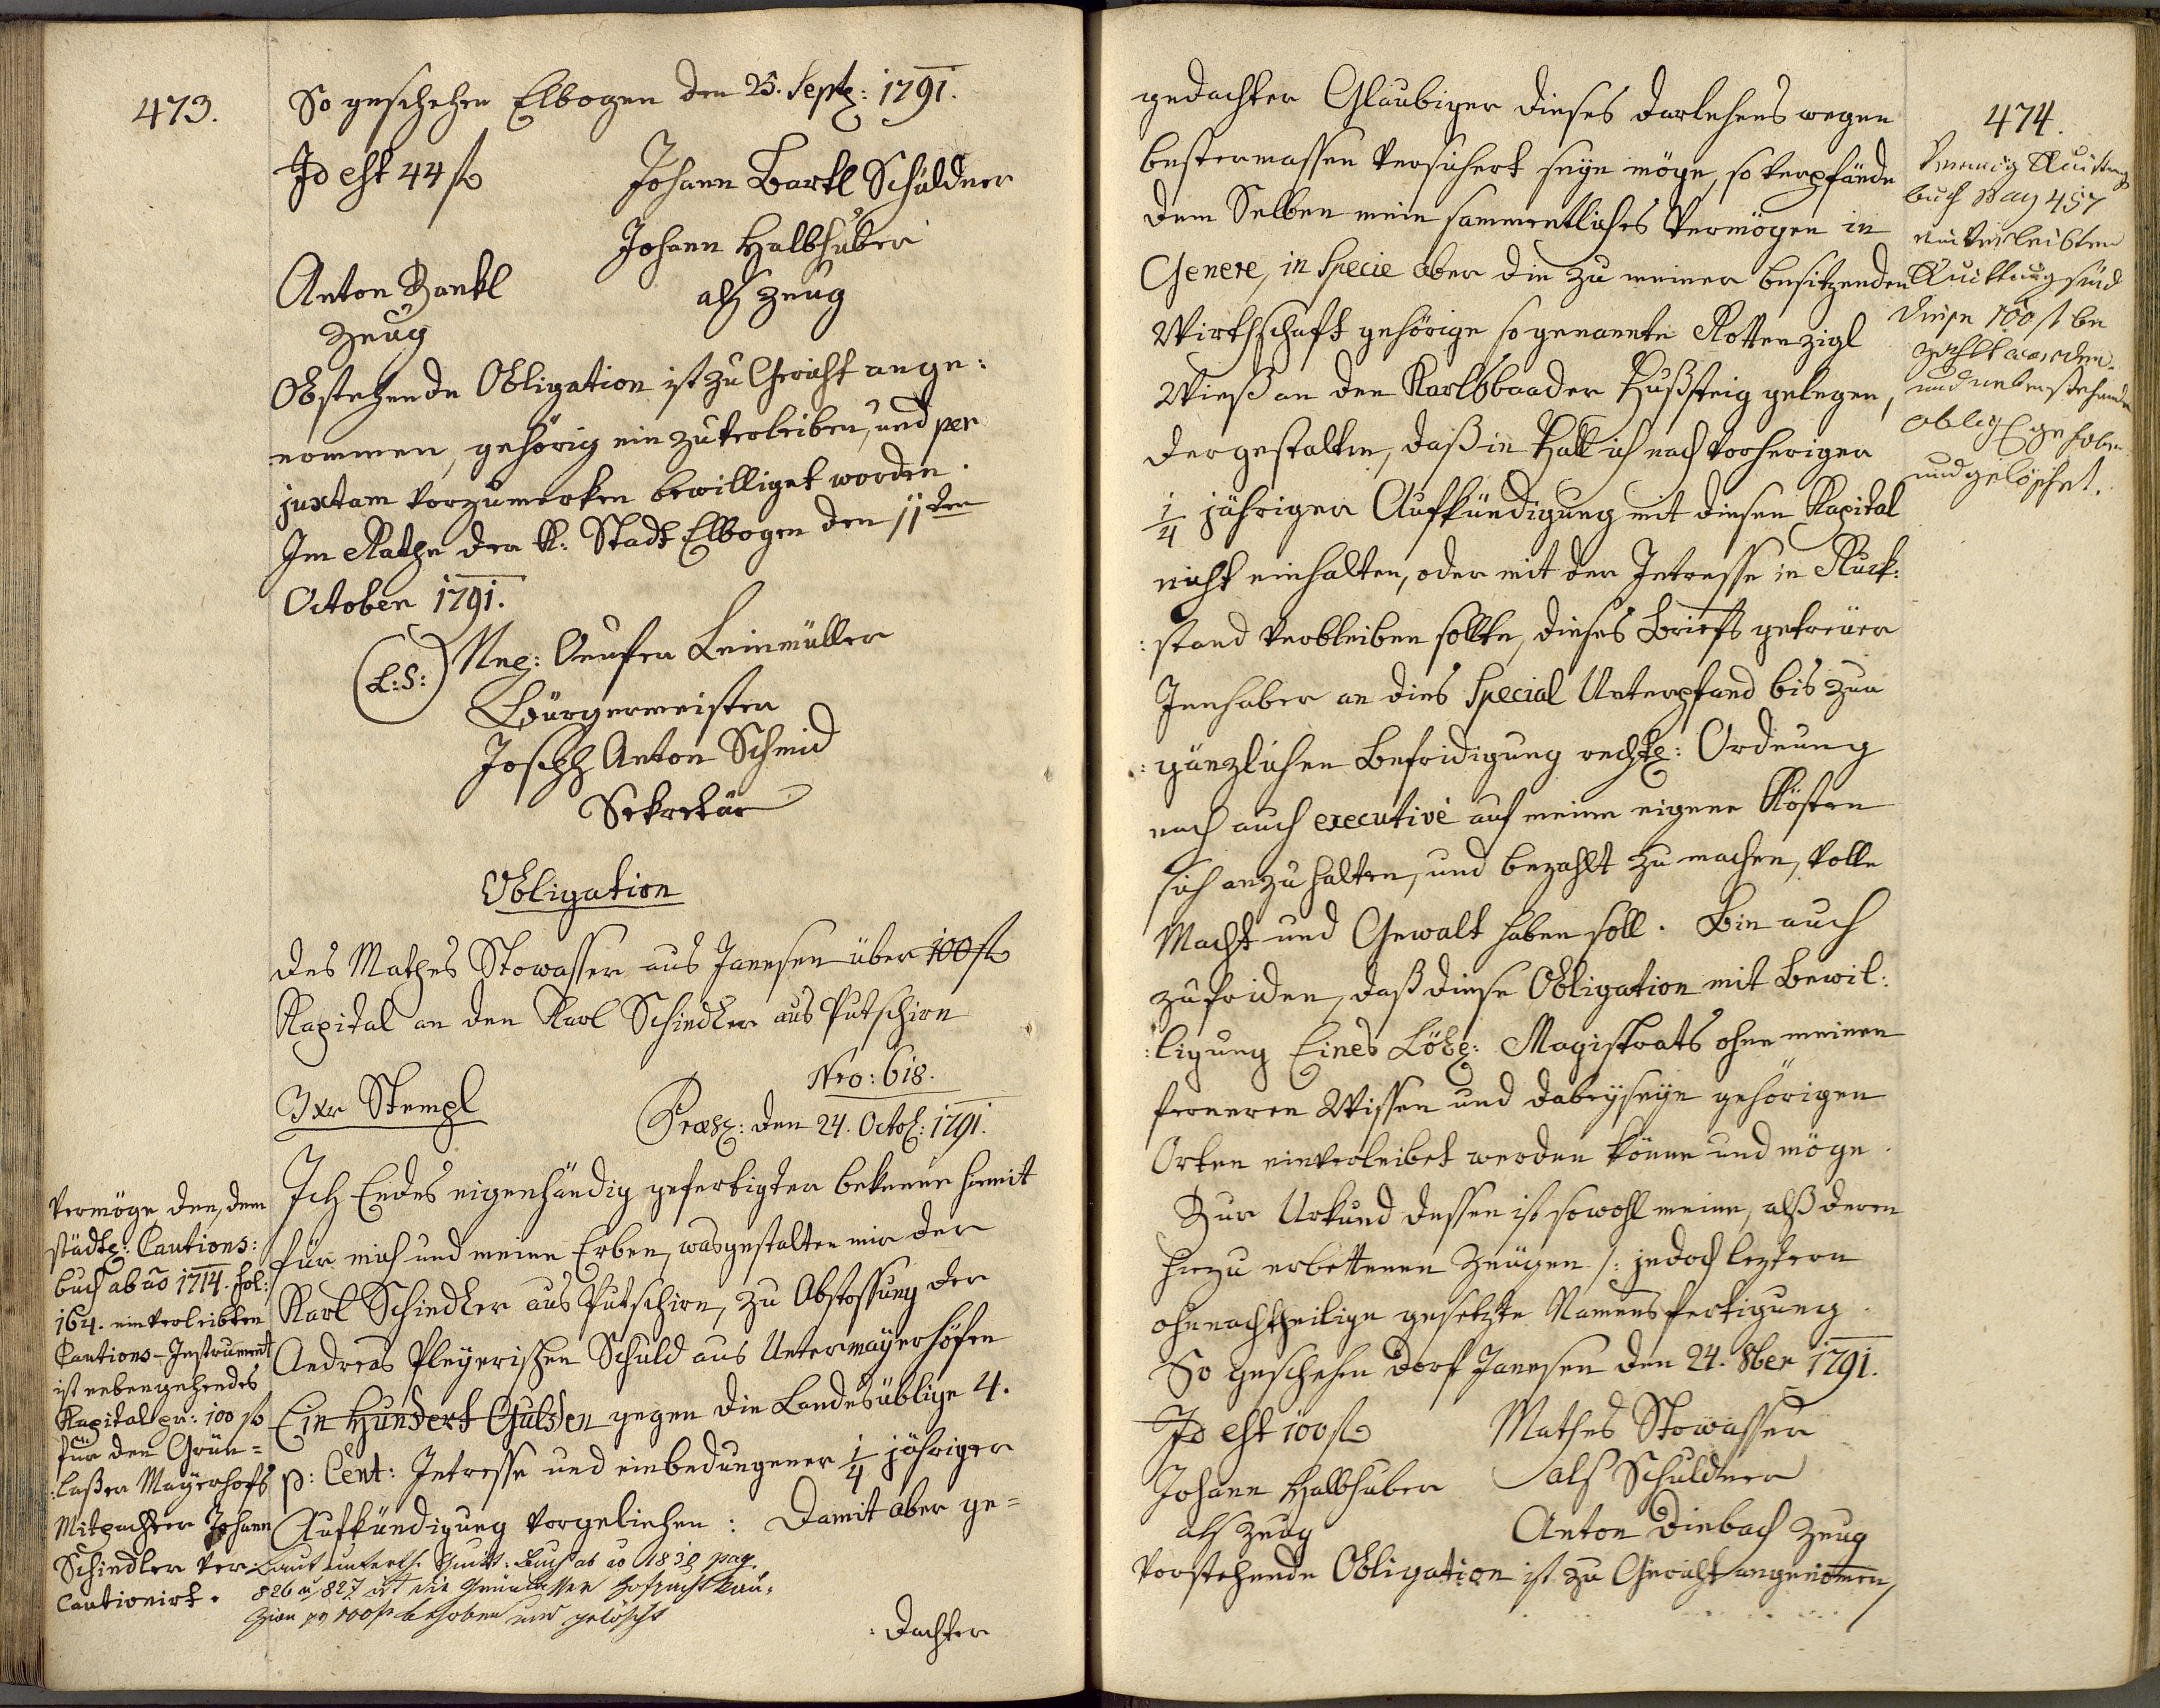 473.
So geschehen Elbogen den 25. Septz: 1791.
Id est 44 f
Johann Bartl Schuldner
Johann Halbhuber
als Zeug
Anton Zankl
Zeug
Obstehende Obligation ist zu Gericht ange:
nommen, gehörig einzuverleiben, und per
juxtam vorzumerken bewilliget worden.
Im Rathe der K: Stadt Elbogen den 11ten
October 1791.
(L:S:)
Leinmüller
Bürgermeister
Joseph Anton Schmid
Sekretär
Obligation
des Mathes Stowasser aus Janesen über 100 f
Kapital an den Karl Schindler aus Putschirn
Nro: 618.
3 xr Stempl
Præs: den 24. Octob: 1791.
Ich Endes eigenhändig gefertigter bekenne hiemit
für mich und meine Erben, wasgestalten mir der
Karl Schindler aus Putschirn, zu Abstossung der
Andreas Pleyerischen Schuld aus Untermayerhöfen
Ein Hundert Gulden gegen die Landesüblige 4.
p: Cent: Intresse und einbedungener 1/4 jähriger
Aufkündigung vorgeliehen: Damit aber ge=
:dachter
Vermöge den, dem
städtz: Cautions:
buch ab ao 1714. fol:
164. einverleibten
Cautions-Instrument
ist nebengehendes
Kapital pr: 100 f
für den Grün=
:laßer Mayerhofs
Mitpachter Johann
Schindler ver:
Cautionirt.
Laut unterth. Quitt: Buch ab ao 1830 pag.
826 u 827 ist die Grünlasser Hofpacht Kau:
zion pr 100 f behoben und gelöscht
474.
gedachter Glaubiger dieses Darlehens wegen
bestermassen versichert seyn möge, so verpfände
dem Selben mein sammentliches Vermögen in
Genere, in Specie aber die zu meiner besitzenden
Wirthschaft gehörige so genannte Rottenzigl
Wieß an den Karlsbaader Fußsteig gelegen,
dergestalten, daß in Fall ich nach vorheriger
1/4 jähriger Aufkündigung mit diesen Kapital
nicht einhalten, oder mit der Intresse in Ruck:
:stand verbleiben sollte, dieses Briefs getreuer
Innhaber an dies Special Unterpfand bis zur
:gänzlichen Befridigung rechtz: Ordnung
nach auch executivè auf meine eigene Kösten
sich anzuhalten, und bezahlt zu machen, volle
Macht und Gewalt haben soll. Bin auch
zufriden, daß diese Obligation mit Bewil:
:ligung Eines Löbz: Magistrats ohne meinen
ferneren Wissen und Dabeyseyn gehörigen
Orten einverleibet werden könne und möge.
Zur Urkund dessen ist sowohl meine, alß deren
hiezu erbettenen Zeugen /: jedoch leztern
ohnnachtheilige gesetzte Namensfertigung.
So geschehen Dorf Janesen den 24. 8ber 1791.
Id est 100 f
Mathes Stowasser
als Schuldner
Johann Halbhuber
als Zeug
Anton Diebach Zeug
Vorstehende Obligation ist zu Gericht angenomen,
Vermög Quittungs
buch Pag 457
einverleibten
Quittung sind
diese 100 f be
zahlt worden
und nebenstehende
oblig gehoben
und gelöschet.